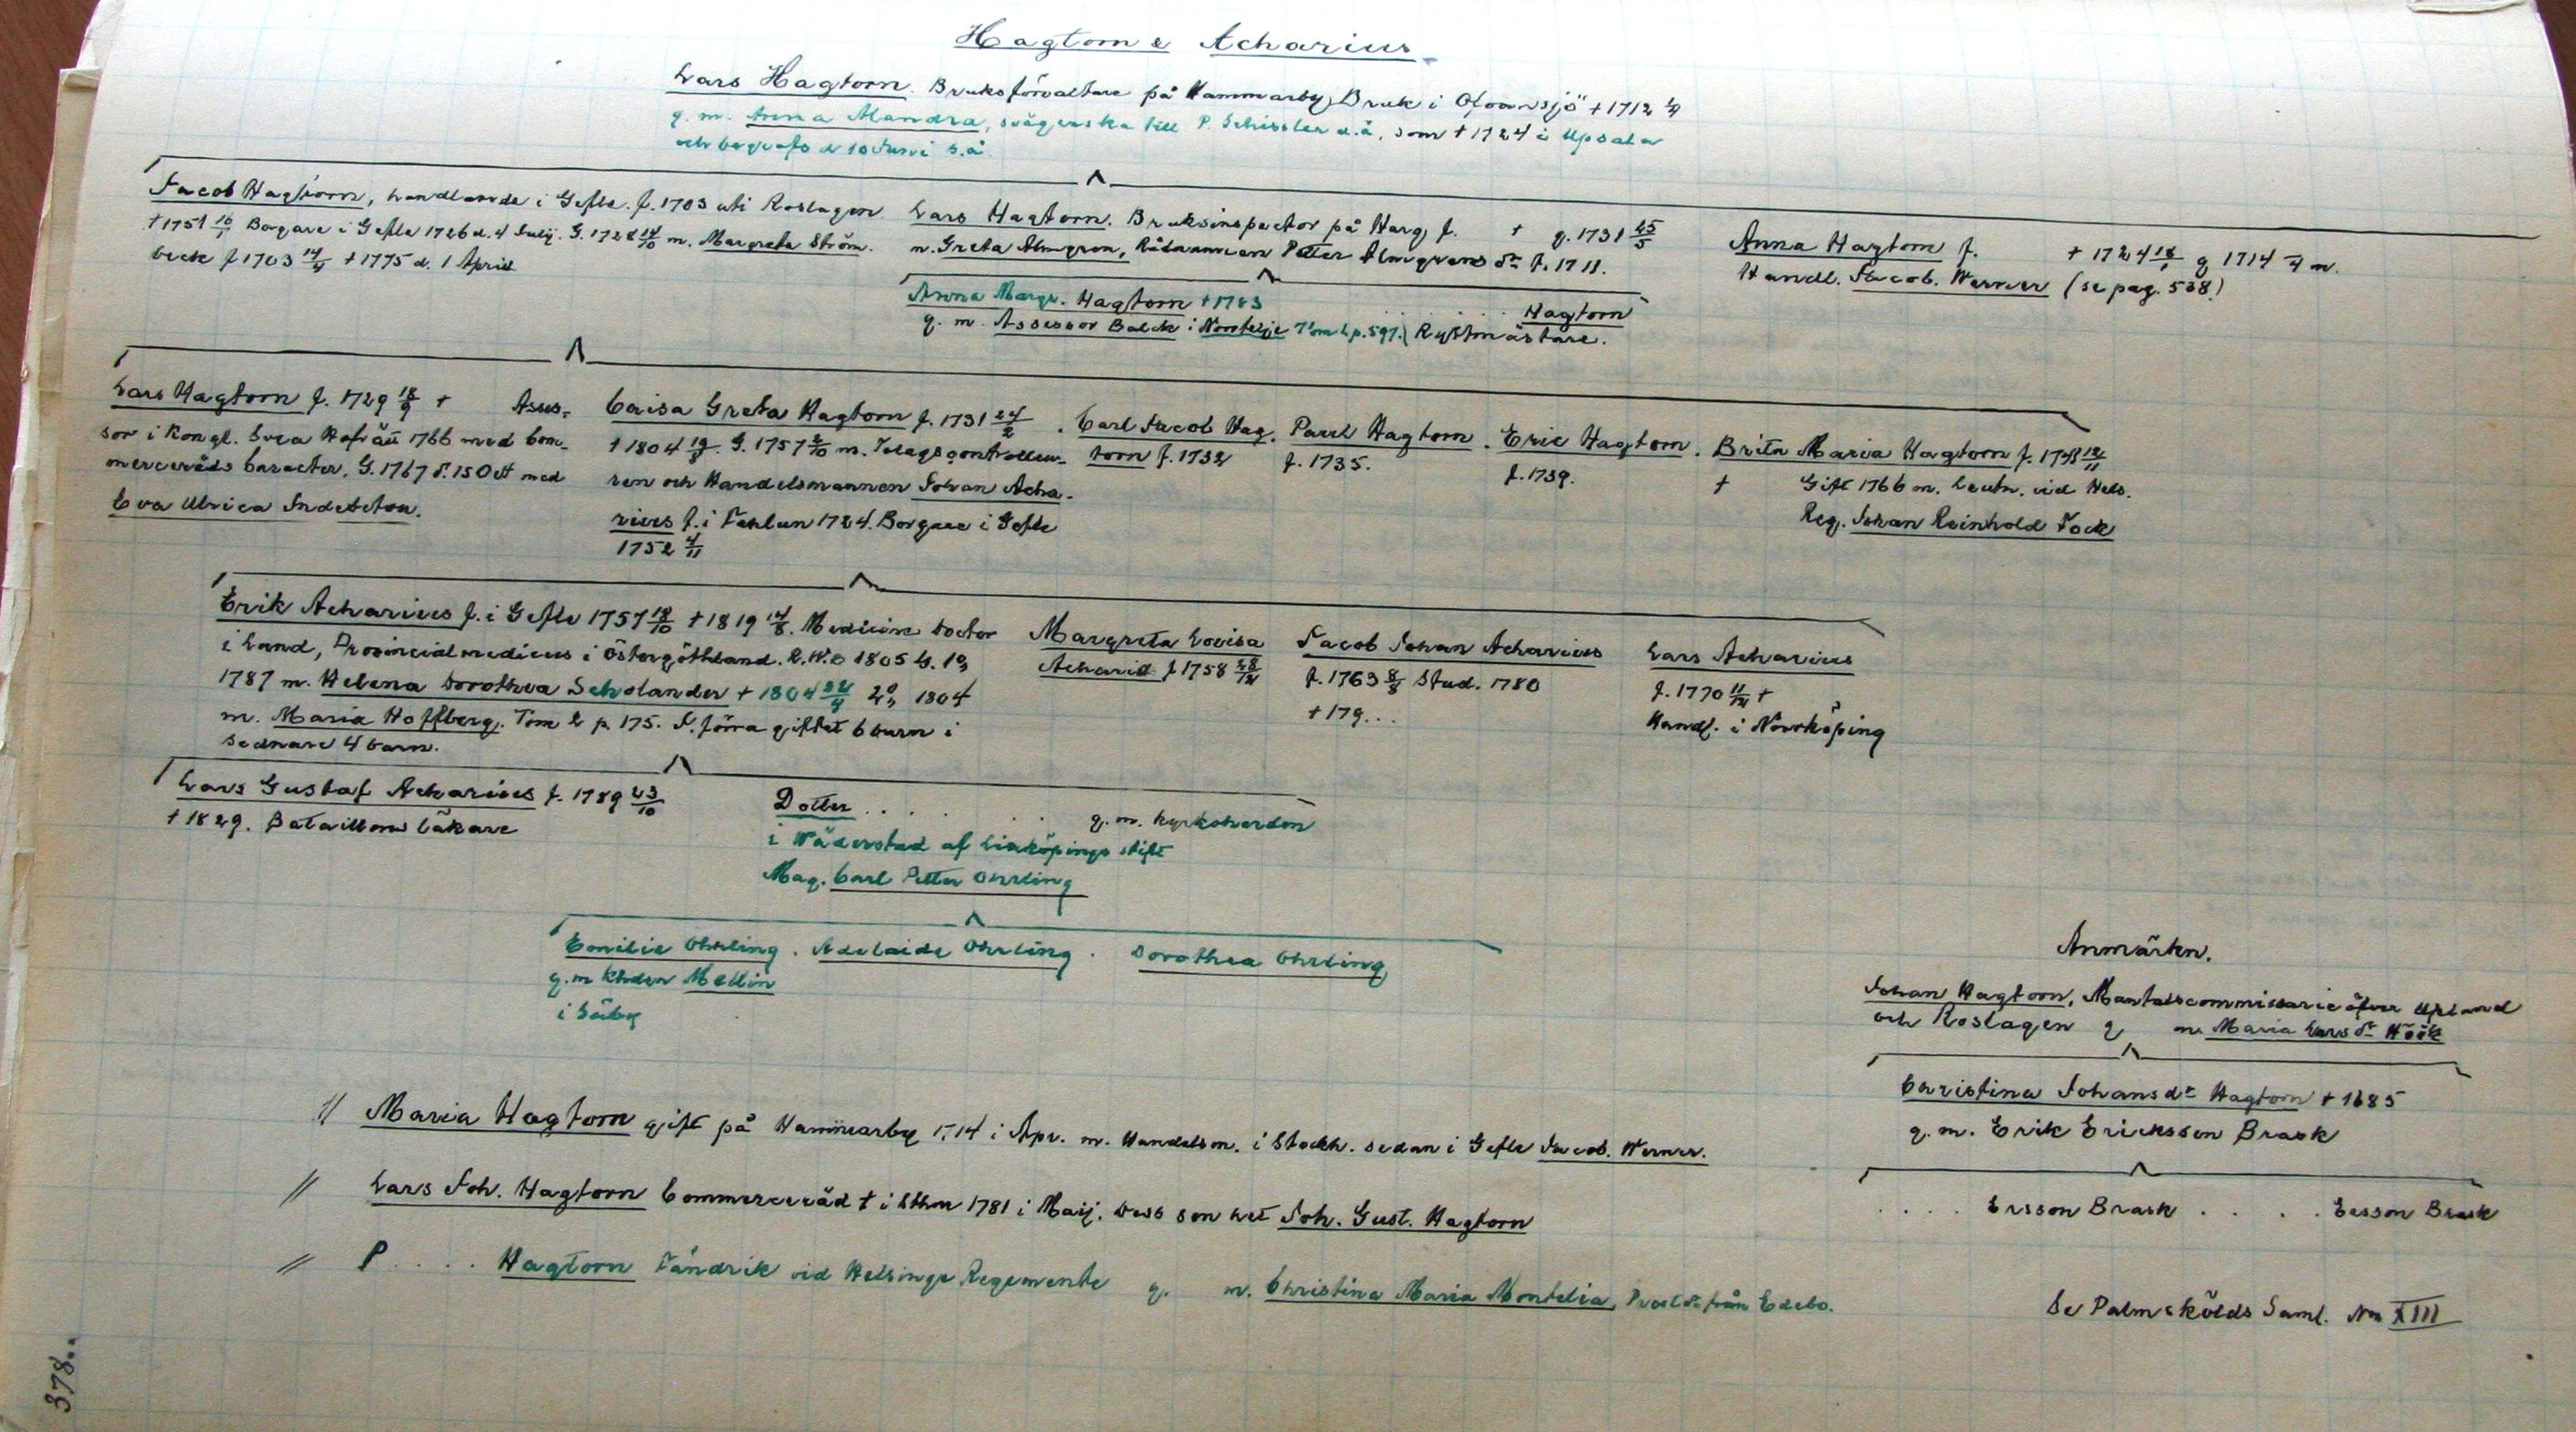 Hagtorn & Acharius
Lars Hagtorn. Bruksförvaltare på Hammarby Bruk i Ofvansjö † 1712
g. m. Anna Alandra, svägerska till P. Schissler d.ä, som † 1724 i Upsala
och begrafs d 10 Juni s.å.
Jacob Hagtorn, handlande i Gefle. f. 1703 uti Roslagen
† 1751 16/1 Borgare i Gefle 1726 d. 4 Julij. G. 1728 14/10 m. Margreta Ström-
beck f 1703 14/4 † 1775 d. 1 April
Lars Hagtorn. Bruksinspector på Harg f. † g. 1731 25/5
m. Greta Almgren, Rådmannen Petter Almgrens dr f. 1711.
Anna Margr. Hagtorn † 1783
g. m. Assessor Balck i Norrtelje Tom 2 p. 597.
. . . . . Hagtorn
Ryttmästare.
Anna Hagtorn f. † 1724 18/1 g 1714 /4 m.
Handl. Jacob. Werner (se pag. 538)
Lars Hagtorn f. 1729 18/9 † Asses-
sor i Kongl. Svea Hofrätt 1766 med Com-
merceråds caracter. G. 1767 d. 15 Oct med
Eva Ulrica Indebetou.
Caisa Greta Hagtorn f. 1731 24/2
† 1804 19/8. G. 1757 2/10 m. Tolagscontrolleu-
ren och Handelsmannen Johan Acha-
rius f. i Fahlun 1724. Borgare i Gefle
1752 4/11
Carl Jacob Hag-
torn f. 1732
Paul Hagtorn
f. 1735.
Eric Hagtorn
f. 1739.
Brita Maria Hagtorn f. 12/11
† Gift 1766 m. Leutn. vid Hels.
Reg. Johan Reinhold Fock
Erik Acharius f. i Gefle 1757 10/10 † 1819 14/8. Medicine Doctor
i Lund, Provincialmedicus i Östergöthland. R.W.O 1805 G. 1o
1787 m. Helena Dorothea Scholander † 1804 22/4 2o 1804
m. Maria Hoffberg. Tom 2 p. 175. I förra giftet 6 barn i
sednare 4 barn.
Margreta Lovisa
Acharia f 1758 28/12
Jacob Johan Acharius
f. 1763 8/8 Stud. 1780
† 179...
Lars Acharius
f. 1770 11/12 †
Handl. i Norrköping
Lars Gustaf Acharius f. 1789 23/10
† 1829. Bataillons läkare
Dotter . . . . . g. m. kyrkoherden
i Wäderstad af Linköpings stift
Mag. Carl Petter Ohrling
Emilie Ohrling . Adelaide Ohrling . Dorothea Ohrling
g. m Khden Mellin
i Säby
Anmärkn.
Johan Hagtorn, Mantalscommissarie öfver Upland
och Roslagen g m. Maria Lars dr Höök
Christina Johansdr Hagtorn † 1685
g. m. Erik Ericksson Brask
. . . . Ersson Brask . . . . Ersson Brask
// Maria Hagtorn gift på Hammarby 1714 i Apr. m. Handelsm. i Stockh. sedan i Gefle Jacob. Werner.
// Lars Joh. Hagtorn Commerceråd † i Sthm 1781 i Maij. Dess son het Joh. Gust. Hagtorn
// P . . . . Hagtorn Fändrik vid Helsinge Regemente g. m. Christina Maria Montelia, Prostdr från Edebo.
Se Palmskölds Saml. No XIII
378..